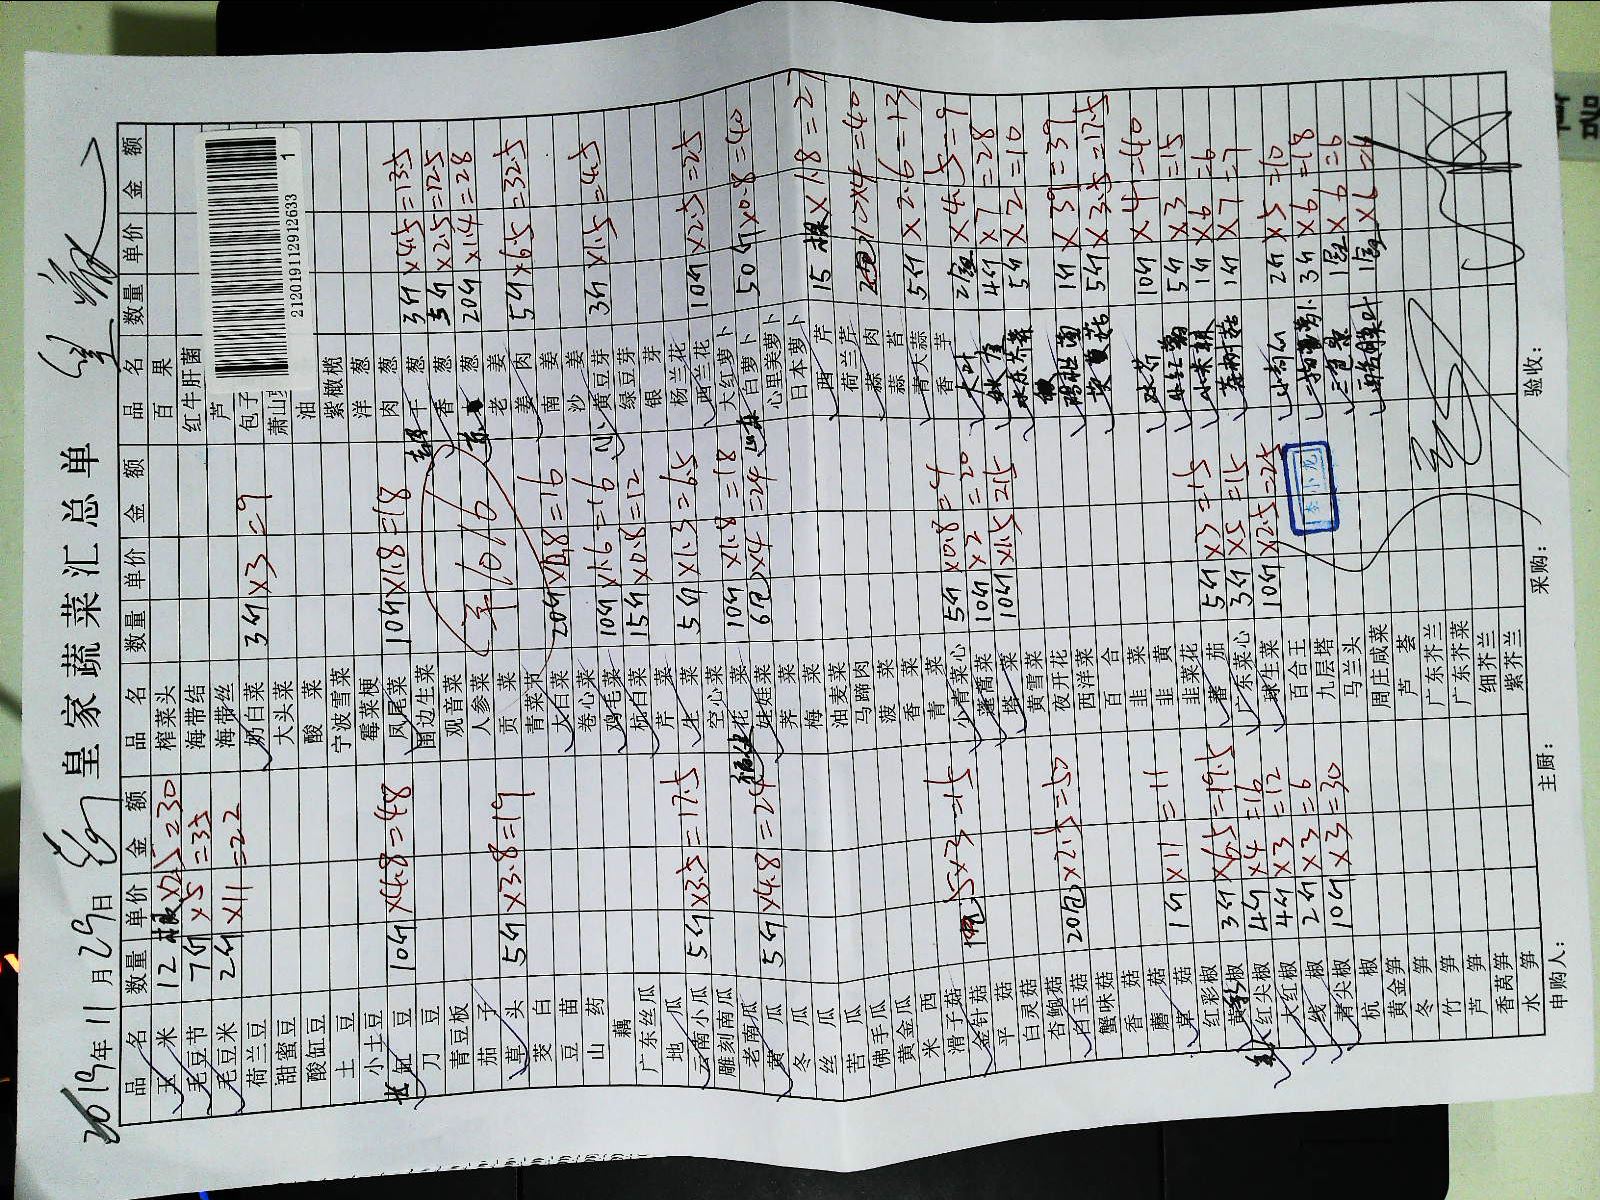 2019年11月29日 皇家蔬菜汇总单
品名 数量 单价 金额 品名 数量 单价 金额 品名 数量 单价 金额
玉米 12根×2.5=30 榨菜头 百果
毛豆节 7斤×5=35 海带结 红牛肝菌
毛豆米 2斤×11=22 海带丝 芦
荷兰豆 奶白菜 3斤×3=9 包子
甜蜜豆 大头菜 萧山
酸缸豆 酸菜 油
土豆 宁波雪菜 紫橄榄
小土豆 霉菜梗 洋葱
长缸豆 10斤×4.8=48 凤尾菜 10斤×1.8=18 肉葱
刀豆 围边生菜 干葱 3斤×4.5=13.5
青豆板 观音菜 香葱 5斤×2.5=12.5
茄子 人参菜 葱 20斤×1.4=28
草头 5斤×3.8=19 贡菜 老姜
茭白 青菜节 姜肉 5斤×6.5=32.5
豆苗 大白菜 20斤×0.8=16 南姜
山药 卷心菜 沙姜
藕 鸡毛菜 10斤×1.6=16 小黄豆芽 3斤×1.5=4.5
广东丝瓜 杭白菜 15斤×0.8=12 绿豆芽
地瓜 芹菜 银芽
云南小瓜 5斤×3.5=17.5 生菜 5斤×1.3=6.5 杨兰花
雕刻南瓜 空心菜 西兰花 10斤×2.5=25
老南瓜 花菜 10斤×1.8=18 大红萝卜
黄瓜 5斤×4.8=24 娃娃菜 6包×4=24 白萝卜 50斤×0.8=40
冬瓜 荠菜 心里美萝卜
丝瓜 梅菜 日本萝卜
苦瓜 油麦菜 西芹 15根×1.8=27
佛手瓜 马蹄肉 荷兰芹
黄金瓜 菠菜 蒜肉 10×4=40
米西 香菜 蒜苔 5斤×2.6=13
滑子菇 青菜 青大蒜
金针菇 5×3=15 小青菜心 5斤×0.8=4 香芋 ×4.5=9
平菇 蓬蒿菜 10斤×2=20 4斤×7=28
白灵菇 塔菜 10斤×1.5=15 5斤×2=10
杏鲍菇 黄雪菜
白玉菇 20包×2.5=50 夜开花 1斤×39=39
蟹味菇 西洋菜 5斤×3.5=17.5
香菇 百合
蘑菇 韭菜 10斤×4=40
草菇 1斤×11=11 韭黄 5斤×3=15
红彩椒 韭菜花 小米椒 1斤×6=6
黄彩椒 3斤×6.5=19.5 蕃茄 5斤×3=15 1斤×7=7
红尖椒 4斤×4=16 广东菜心 3斤×5=15
大红椒 4斤×3=12 球生菜 10斤×2.5=25 2斤×5=10
线椒 2斤×3=6 百合王 3斤×6=18
青尖椒 10斤×3=30 九层塔 三色堇 1层×6=6
杭椒 马兰头 1层×6=6
黄金笋 周庄咸菜
冬笋 芦荟
竹笋 广东芥兰
芦笋 广东芥菜
香莴笋 细芥兰
水笋 紫芥兰
1016
李小龙
2120191129126331
申购人： 主厨： 采购： 验收：
算器